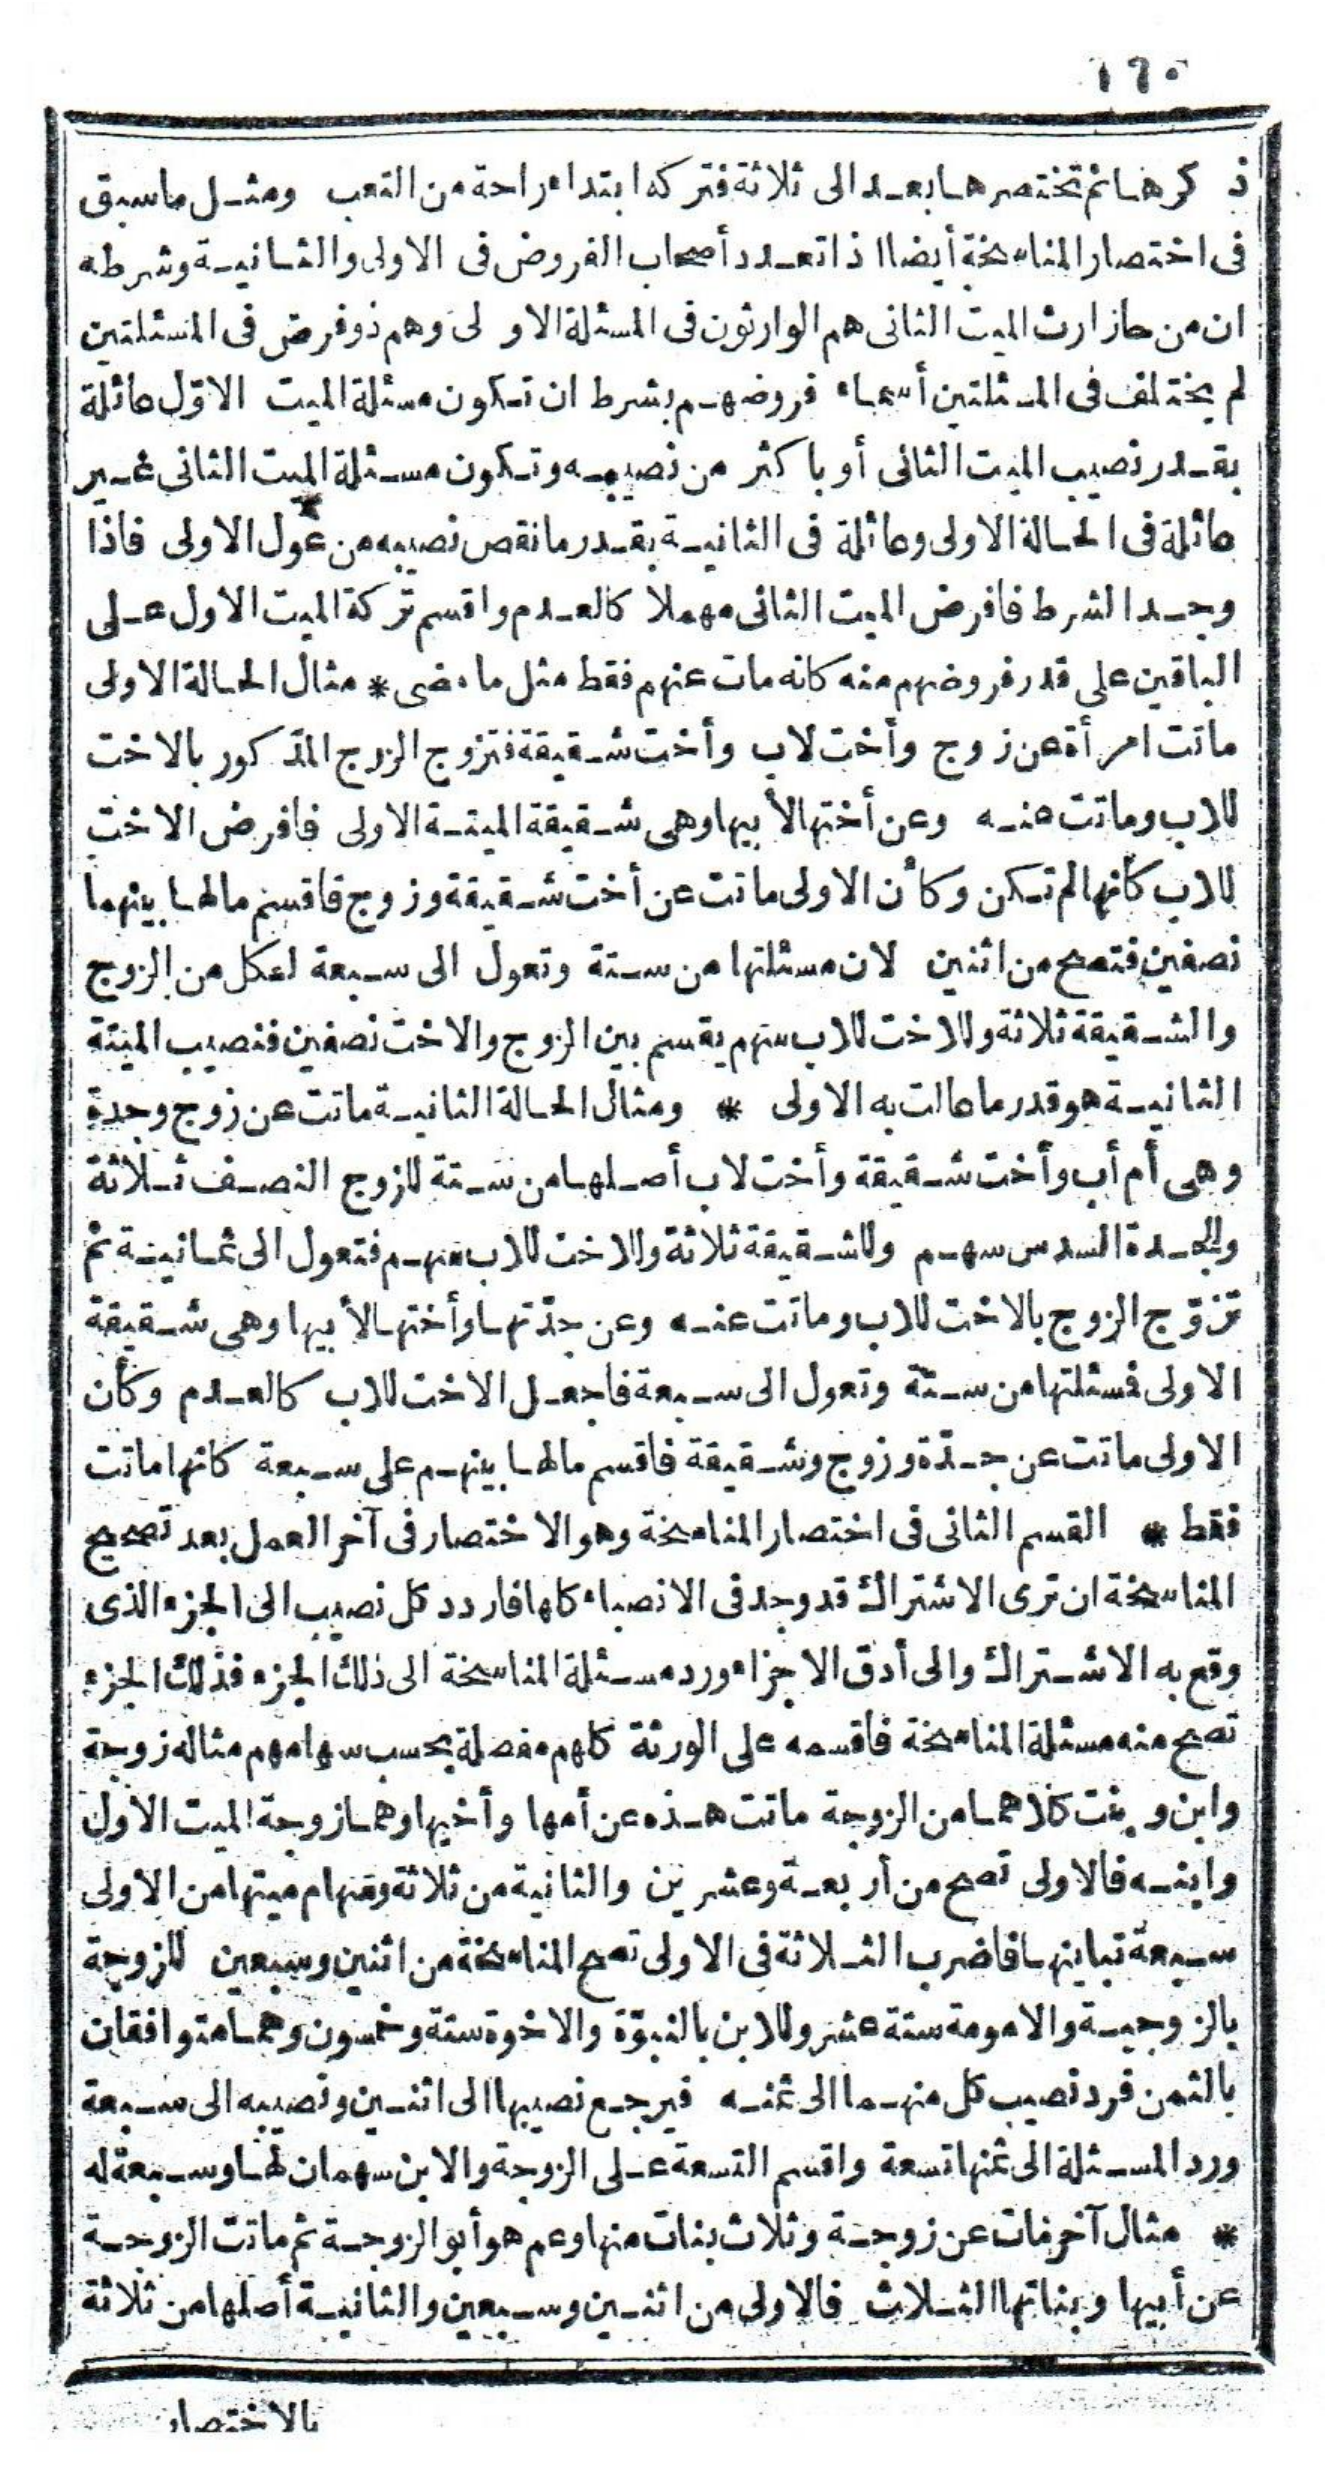 ١٦٥
ذكرها ثم تختصرها بعد الى ثلاثة فتركه ابتداء راحة من التعب ومثل ما سبق
فى اختصار المناسخة أيضا اذا تعدد أصحاب الفروض فى الاولى والثانية وشرطه
ان من حاز ارث الميت الثانى هم الوارثون فى المسئلة الاولى وهم ذو فرض فى المسئلتين
لم يختلف فى المسئلتين أسماء فروضهم بشرط ان تكون مسئلة الميت الاوّل عائلة
بقدر نصيب الميت الثانى أو باكثر من نصيبه وتكون مسئلة الميت الثانى غير
عائلة فى الحالة الاولى وعائلة فى الثانية بقدر ما نقص نصيبه من عول الاولى فاذا
وجد الشرط فافرض الميت الثانى مهملا كالعدم واقسم تركة الميت الاول على
الباقين على قدر فروضهم منه كانه مات عنهم فقط مثل ما مضى * مثال الحالة الاولى
ماتت امرأة عن زوج وأخت لاب وأخت شقيقة فتزوج الزوج المذكور بالاخت
للاب وماتت عنه وعن أختها لأبيها وهى شقيقة الميتة الاولى فافرض الاخت
للاب كأنها لم تكن وكأن الاولى ماتت عن أخت شقيقة وزوج فاقسم مالها بينهما
نصفين فتصح من اثنين لان مسئلتها من ستة وتعول الى سبعة لكل من الزوج
والشقيقة ثلاثة وللاخت للاب سهم يقسم بين الزوج والاخت نصفين فنصيب الميتة
الثانية هو قدر ما عالت به الاولى * ومثال الحالة الثانية ماتت عن زوج وجدة
وهى أم أب وأخت شقيقة وأخت لاب أصلها من ستة للزوج النصف ثلاثة
وللجدة السدس سهم وللشقيقة ثلاثة وللاخت للاب سهم فتعول الى ثمانية ثم
تزوّج الزوج بالاخت للاب وماتت عنه وعن جدّتها وأختها لأبيها وهى شقيقة
الاولى فمسئلتها من ستة وتعول الى سبعة فاجعل الاخت للاب كالعدم وكأن
الاولى ماتت عن جدّة وزوج وشقيقة فاقسم مالها بينهم على سبعة كانها ماتت
فقط * القسم الثانى فى اختصار المناسخة وهو الاختصار فى آخر العمل بعد تصحيح
المناسخة ان ترى الاشتراك قد وجد فى الانصباء كلها فاردد كل نصيب الى الجزء الذى
وقع به الاشتراك والى أدق الاجزاء ورد مسئلة المناسخة الى ذلك الجزء فذلك الجزء
تصح منه مسئلة المناسخة فاقسمه على الورثة كلهم مفصلة بحسب سهامهم مثاله زوجة
وابن وبنت كلاهما من الزوجة ماتت هذه عن أمها وأخيها وهما زوجة الميت الاول
وابنه فالاولى تصح من أربعة وعشرين والثانية من ثلاثة وسهام ميتها من الاولى
سبعة تباينها فاضرب الثلاثة فى الاولى تصح المناسخة من اثنين وسبعين للزوجة
بالزوجية والامومة ستة عشر وللابن بالنبوّة والاخوة ستة وخمسون وهما متوافقان
بالثمن فرد نصيب كل منهما الى ثمنه فيرجع نصيبها الى اثنين ونصيبه الى سبعة
ورد المسئلة الى ثمنها تسعة واقسم التسعة على الزوجة والابن سهمان لها وسبعة له
* مثال آخر مات عن زوجة وثلاث بنات منها وعم هو أبو الزوجة ثم ماتت الزوجة
عن أبيها وبناتها الثلاث فالاولى من اثنين وسبعين والثانية أصلها من ثلاثة
بالاختصار